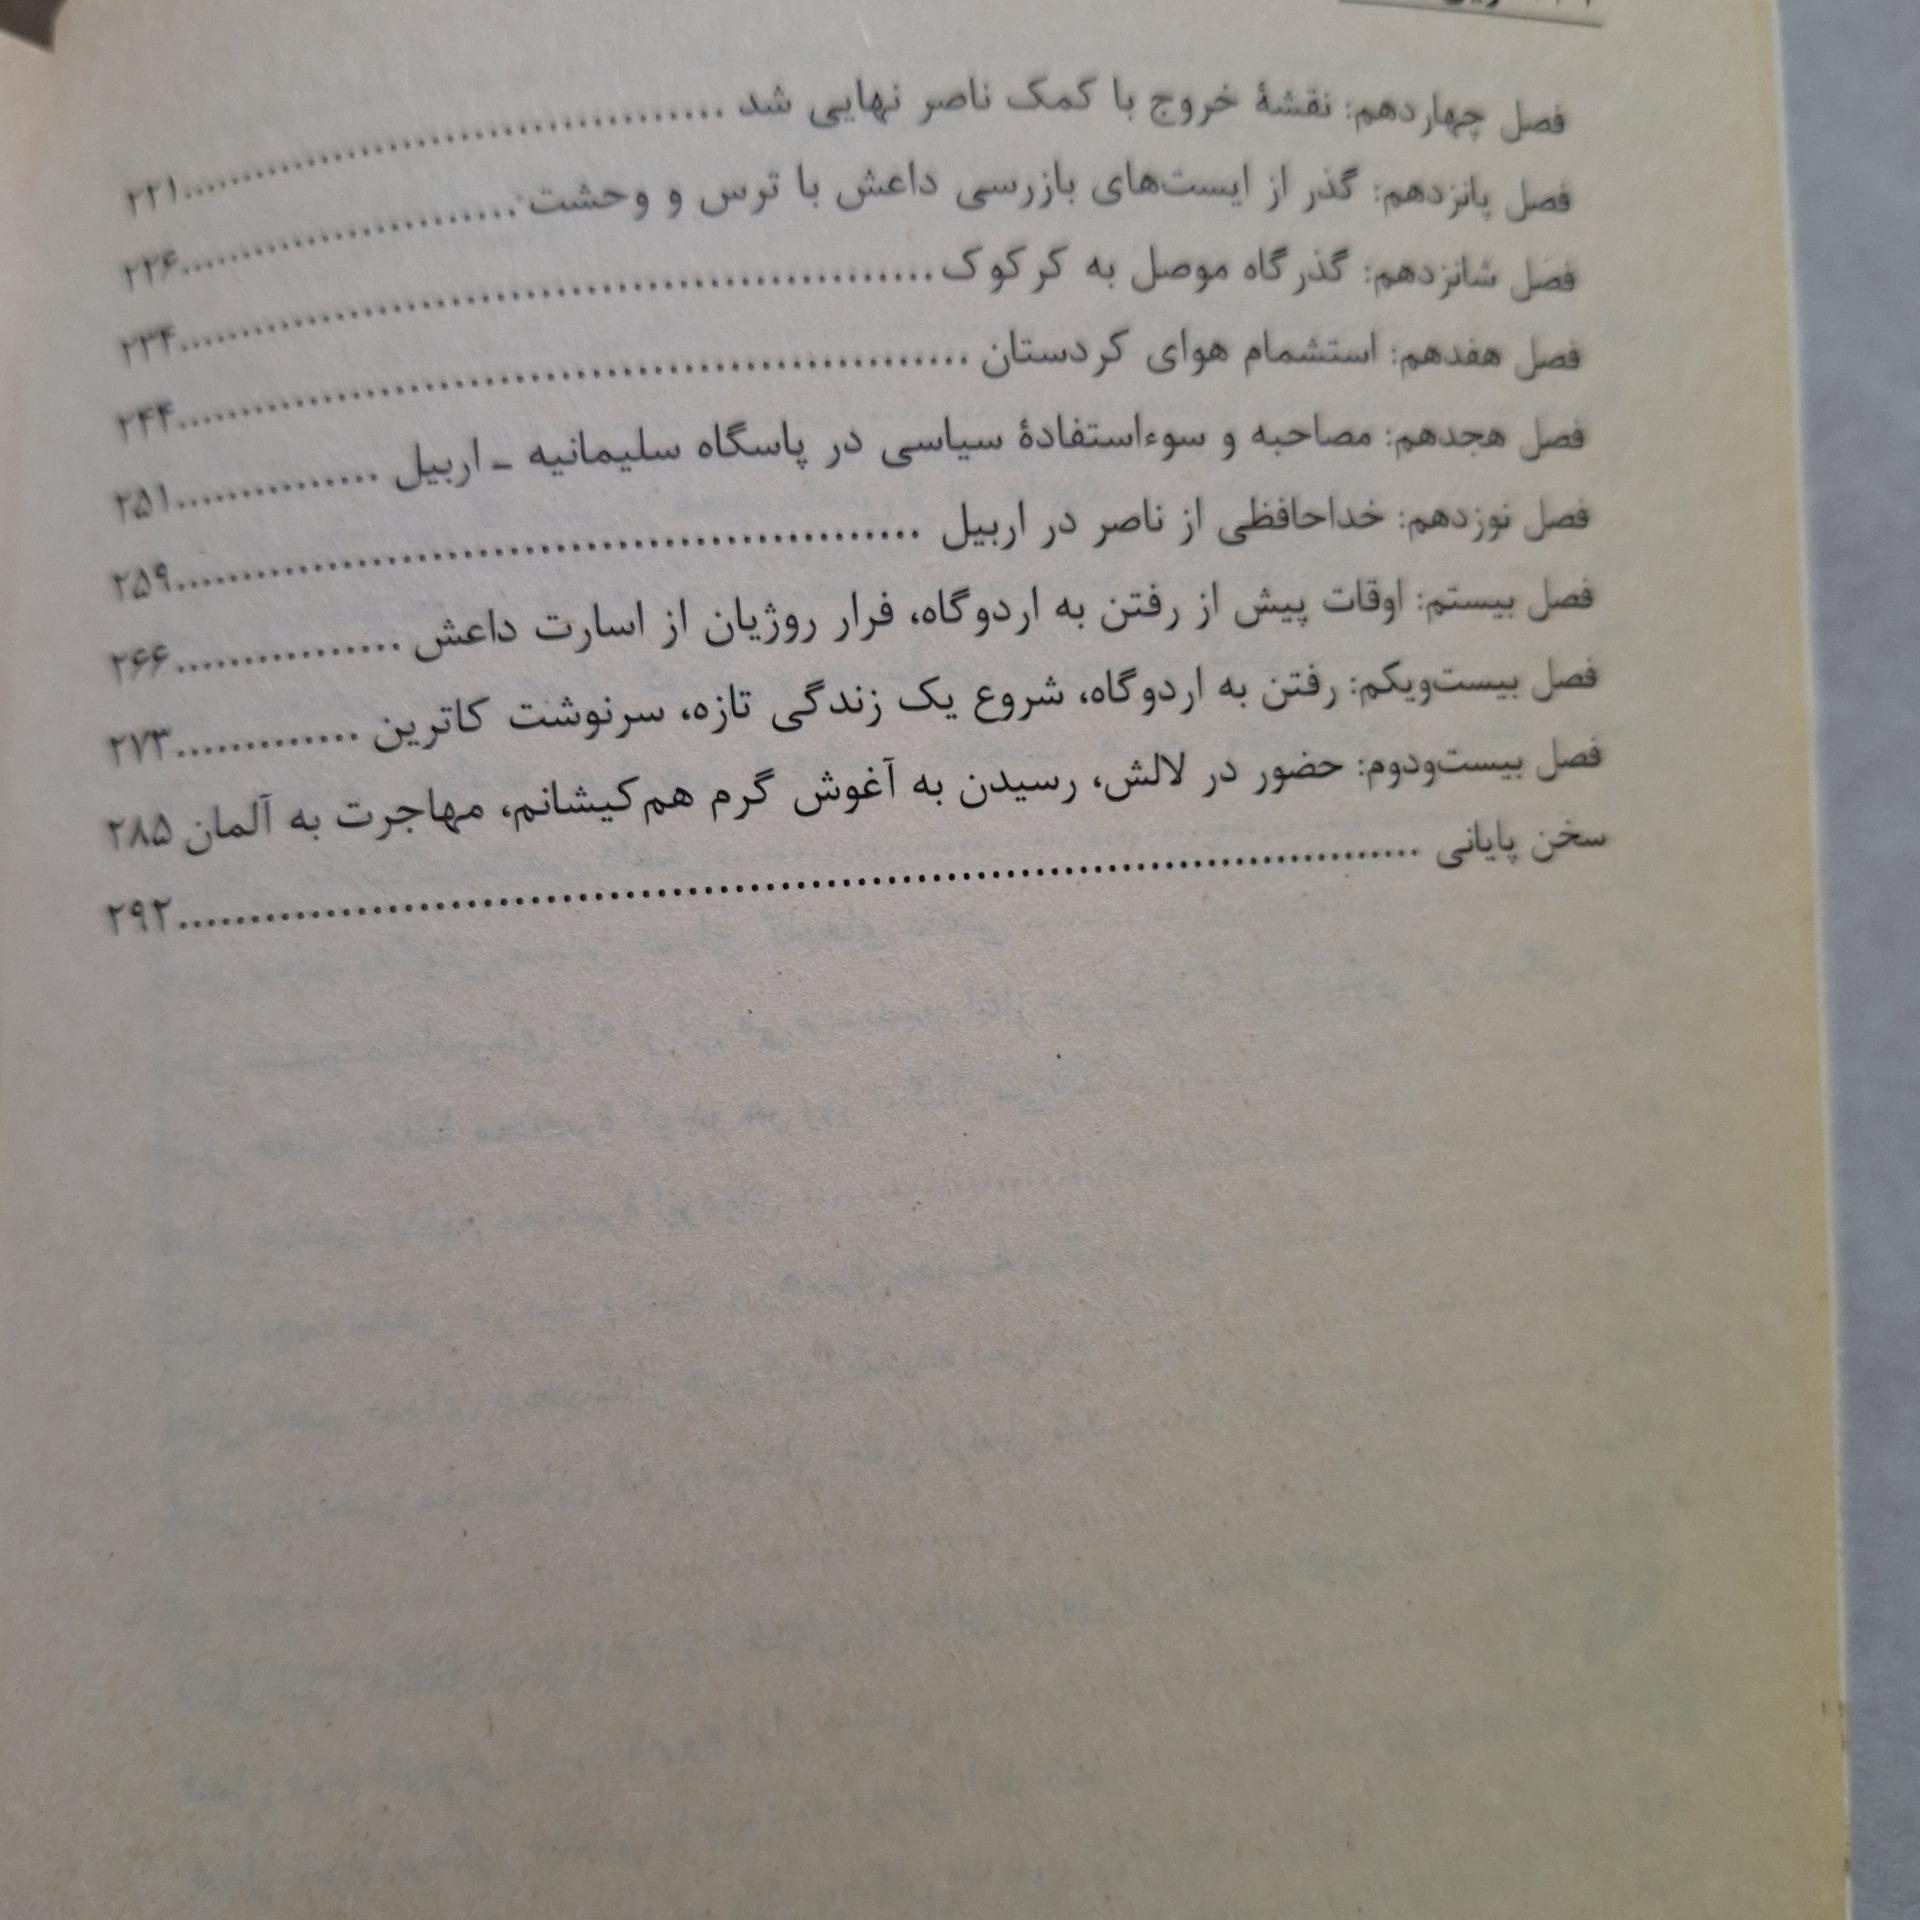 فصل چهاردهم: نقشهٔ خروج با کمک ناصر نهایی شد ........................................ ۲۲۱
فصل پانزدهم: گذر از ایست‌های بازرسی داعش با ترس و وحشت ........................ ۲۲۶
فصل شانزدهم: گذرگاه موصل به کرکوک ................................................ ۲۳۴
فصل هفدهم: استشمام هوای کردستان .................................................. ۲۴۴
فصل هجدهم: مصاحبه و سوءاستفادهٔ سیاسی در پاسگاه سلیمانیه ـ اربیل ............... ۲۵۱
فصل نوزدهم: خداحافظی از ناصر در اربیل ............................................. ۲۵۹
فصل بیستم: اوقات پیش از رفتن به اردوگاه، فرار روژیان از اسارت داعش ................ ۲۶۶
فصل بیست‌ویکم: رفتن به اردوگاه، شروع یک زندگی تازه، سرنوشت کاترین .............. ۲۷۳
فصل بیست‌ودوم: حضور در لالش، رسیدن به آغوش گرم هم‌کیشانم، مهاجرت به آلمان ۲۸۵
سخن پایانی ........................................................................... ۲۹۲